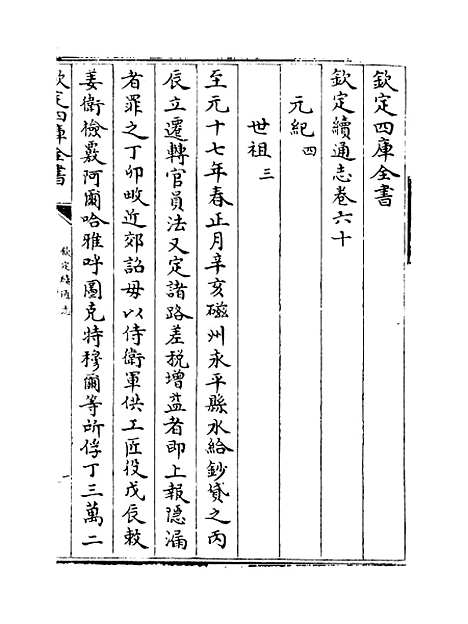 欽定四庫全書
欽定續通志卷六十
元紀四
世祖三
至元十七年春正月辛亥磁州永平縣水給鈔貸之丙
辰立遷轉官員法又定諸路差税增益者即上報隱漏
者罪之丁卯畋近郊詔毋以侍衛軍供工匠役戊辰敕
姜衛檢覈阿爾哈雅呼圖克特穆爾等所俘丁三萬二
欽定四庫全書
欽定續通志
一